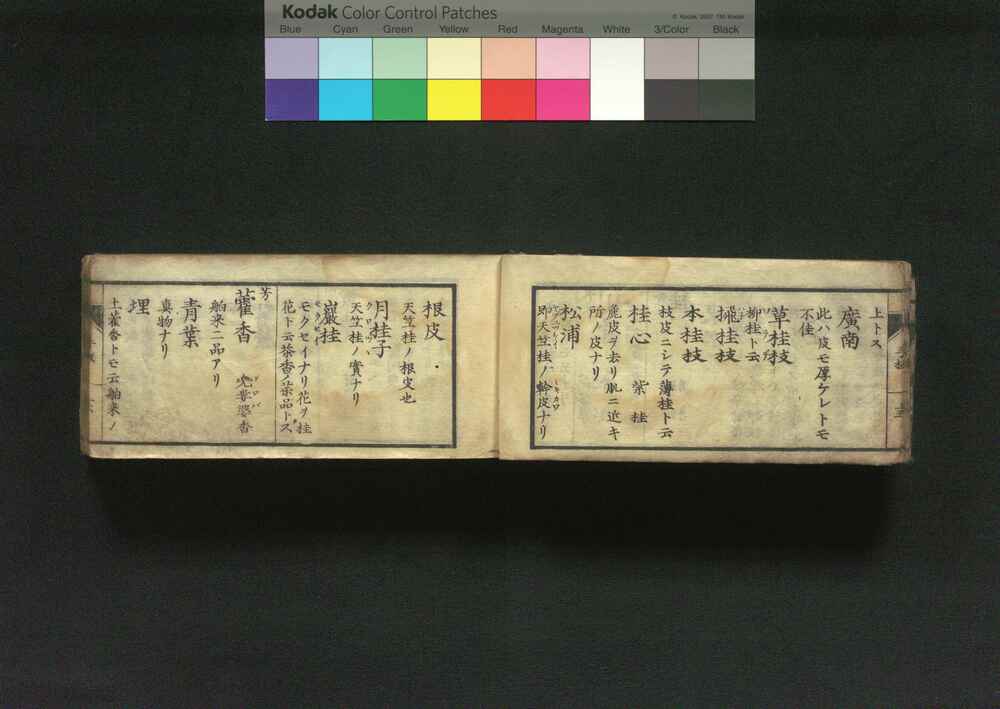 Kodak Color Control Patches
© Kodak, 2007 TM: Kodak
Blue Cyan Green Yellow Red Magenta White 3/Color Black
上トス
廣南
此ハ皮モ厚ケレトモ
不佳
草桂枝
柳桂ト云
桂枝
本桂枝
枝皮ニシテ薄桂ト云
桂心 紫桂
麁皮ヲ去リ肌ニ近キ
所ノ皮ナリ
松浦
即天竺桂ノ幹皮ナリ
根皮
天竺桂ノ根皮也
月桂子
天竺桂ノ實ナリ
巖桂
モクセイナリ花ヲ桂
花ト云茶香ノ茶品トス
芳
藿香 兜婁婆香
舶来ニ品アリ
青葉
真物ナリ
埋
土藿香トモ云舶来ノ